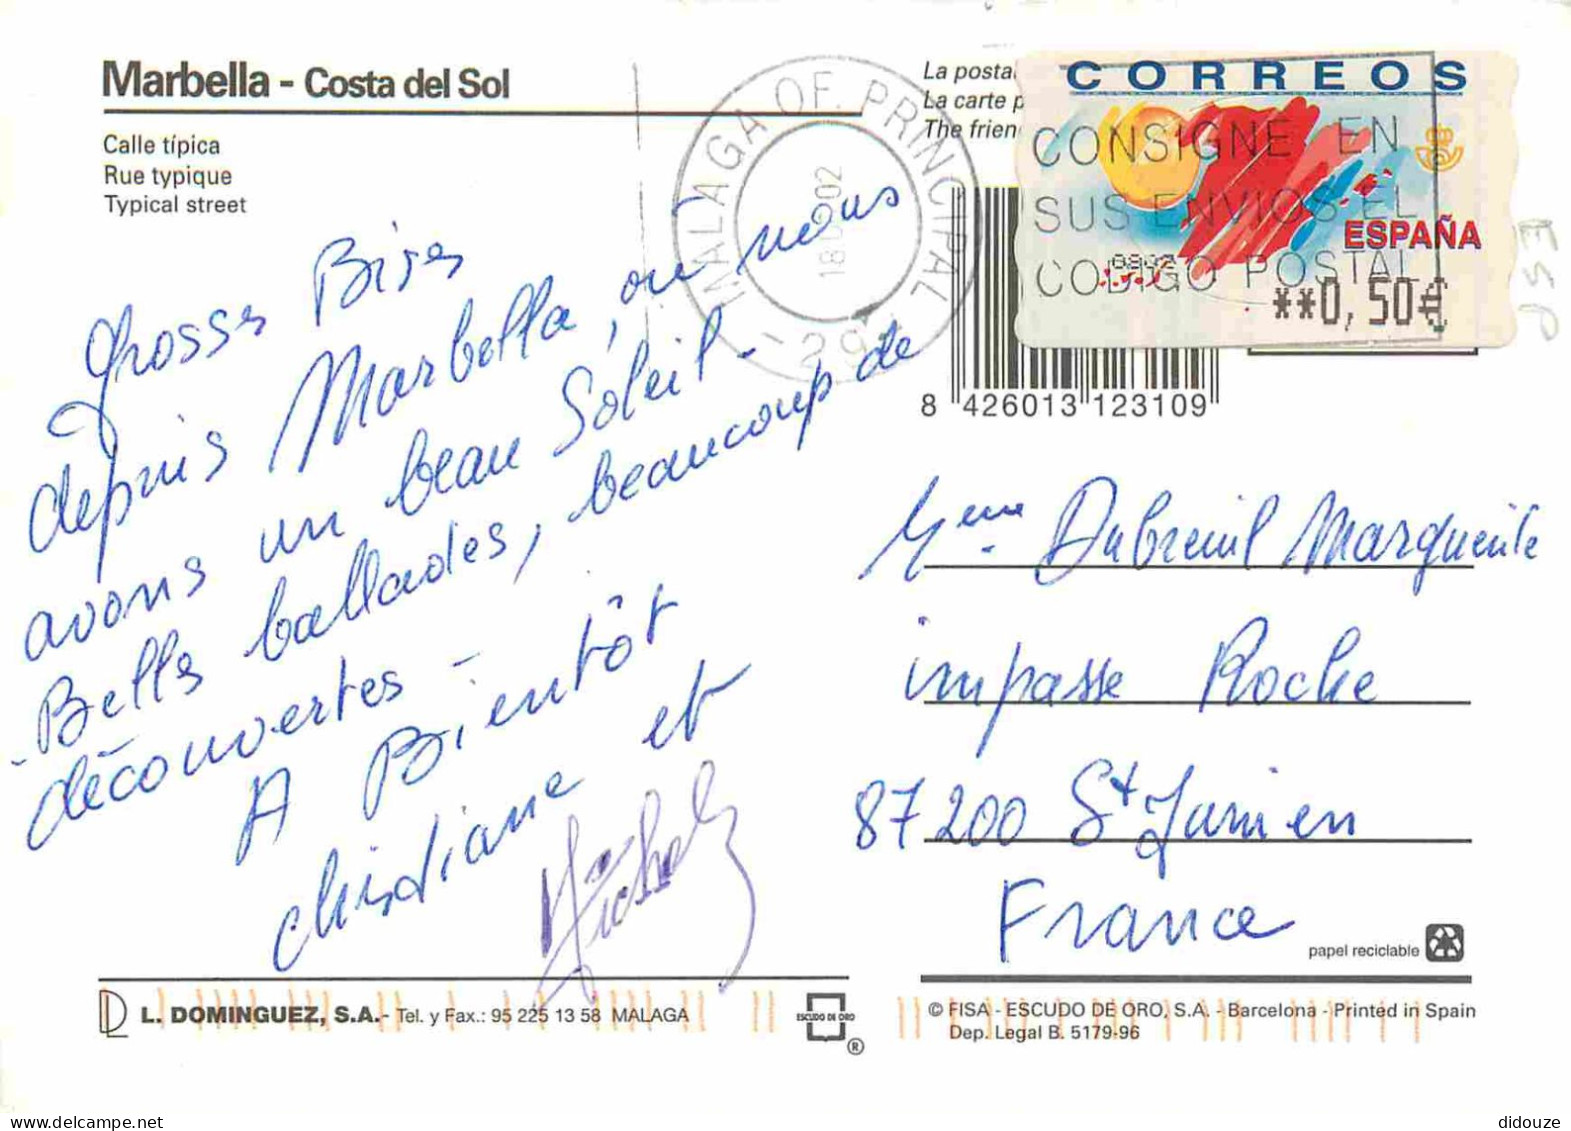 Marbella - Costa del Sol
Calle típica
Rue typique
Typical street
MALAGA OF. PRINCIPAL
- 29 -
La posta
La carte p
The frien
CORREOS
ESPAÑA
**0,50€
CONSIGNE EN
SUS ENVIOS EL
CODIGO POSTAL
8 426013 123109
Grosses Bises
depuis Marbella, où nous
avons un beau Soleil -
- Belles ballades, beaucoup de
découvertes -
A Bientôt
christiane et
Michel
Mme Dubreuil Marguerite
impasse Roche
87200 St Junien
France
papel reciclable
L. DOMINGUEZ, S.A. - Tel. y Fax.: 95 225 13 58 MALAGA
ESCUDO DE ORO
®
© FISA - ESCUDO DE ORO, S.A. - Barcelona - Printed in Spain
Dep. Legal B. 5179-96
didouze